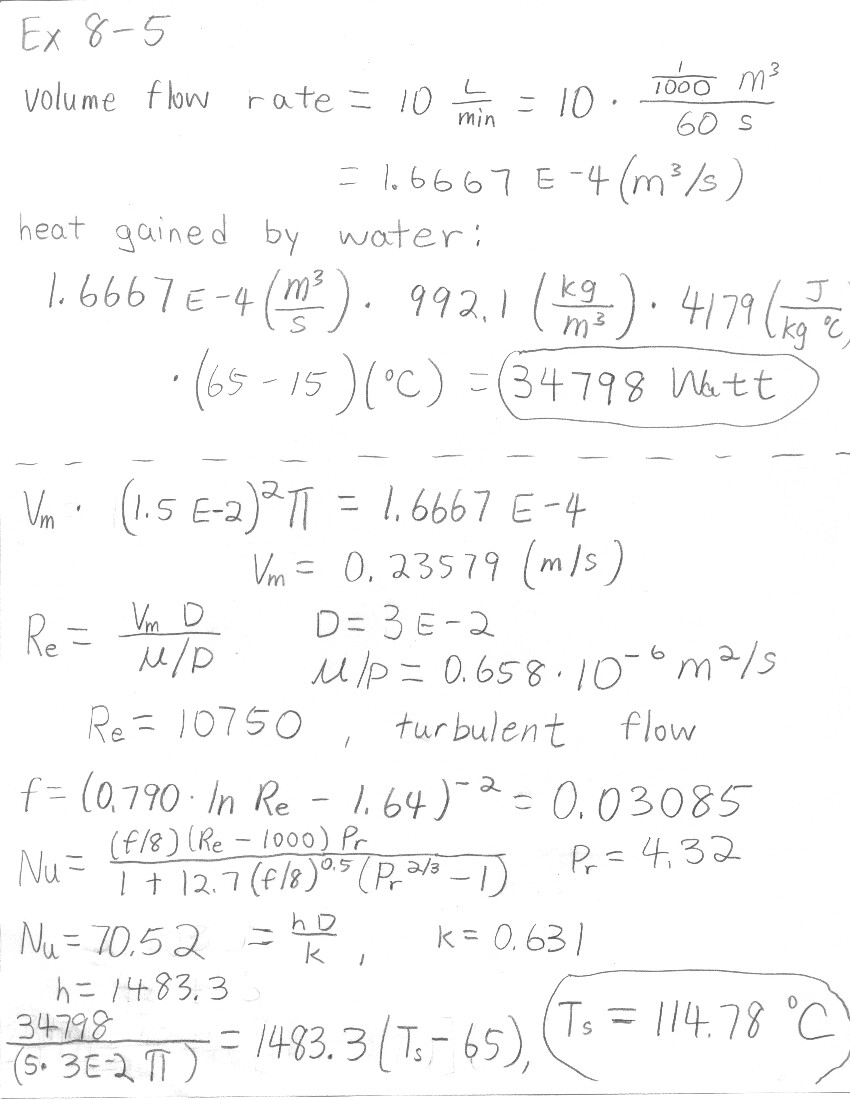 Ex 8-5
volume flow rate = 10 L/min = 10 · (1/1000 m³)/(60 s)
= 1.6667 E-4 (m³/s)
heat gained by water:
1.6667 E-4 (m³/s) · 992.1 (kg/m³) · 4179 (J/kg °C)
· (65-15)(°C) = 34798 Watt
Vm · (1.5 E-2)²π = 1.6667 E-4
Vm = 0.23579 (m/s)
Re = (Vm D)/(μ/ρ) D = 3E-2
μ/ρ = 0.658·10⁻⁶ m²/s
Re = 10750, turbulent flow
f = (0.790·ln Re - 1.64)⁻² = 0.03085
Nu = ((f/8)(Re-1000) Pr)/(1 + 12.7(f/8)^0.5 (Pr^2/3 - 1)) Pr = 4.32
Nu = 70.52 = hD/k, k = 0.631
h = 1483.3
34798/(5·3E-2 π) = 1483.3(Ts - 65), Ts = 114.78 °C